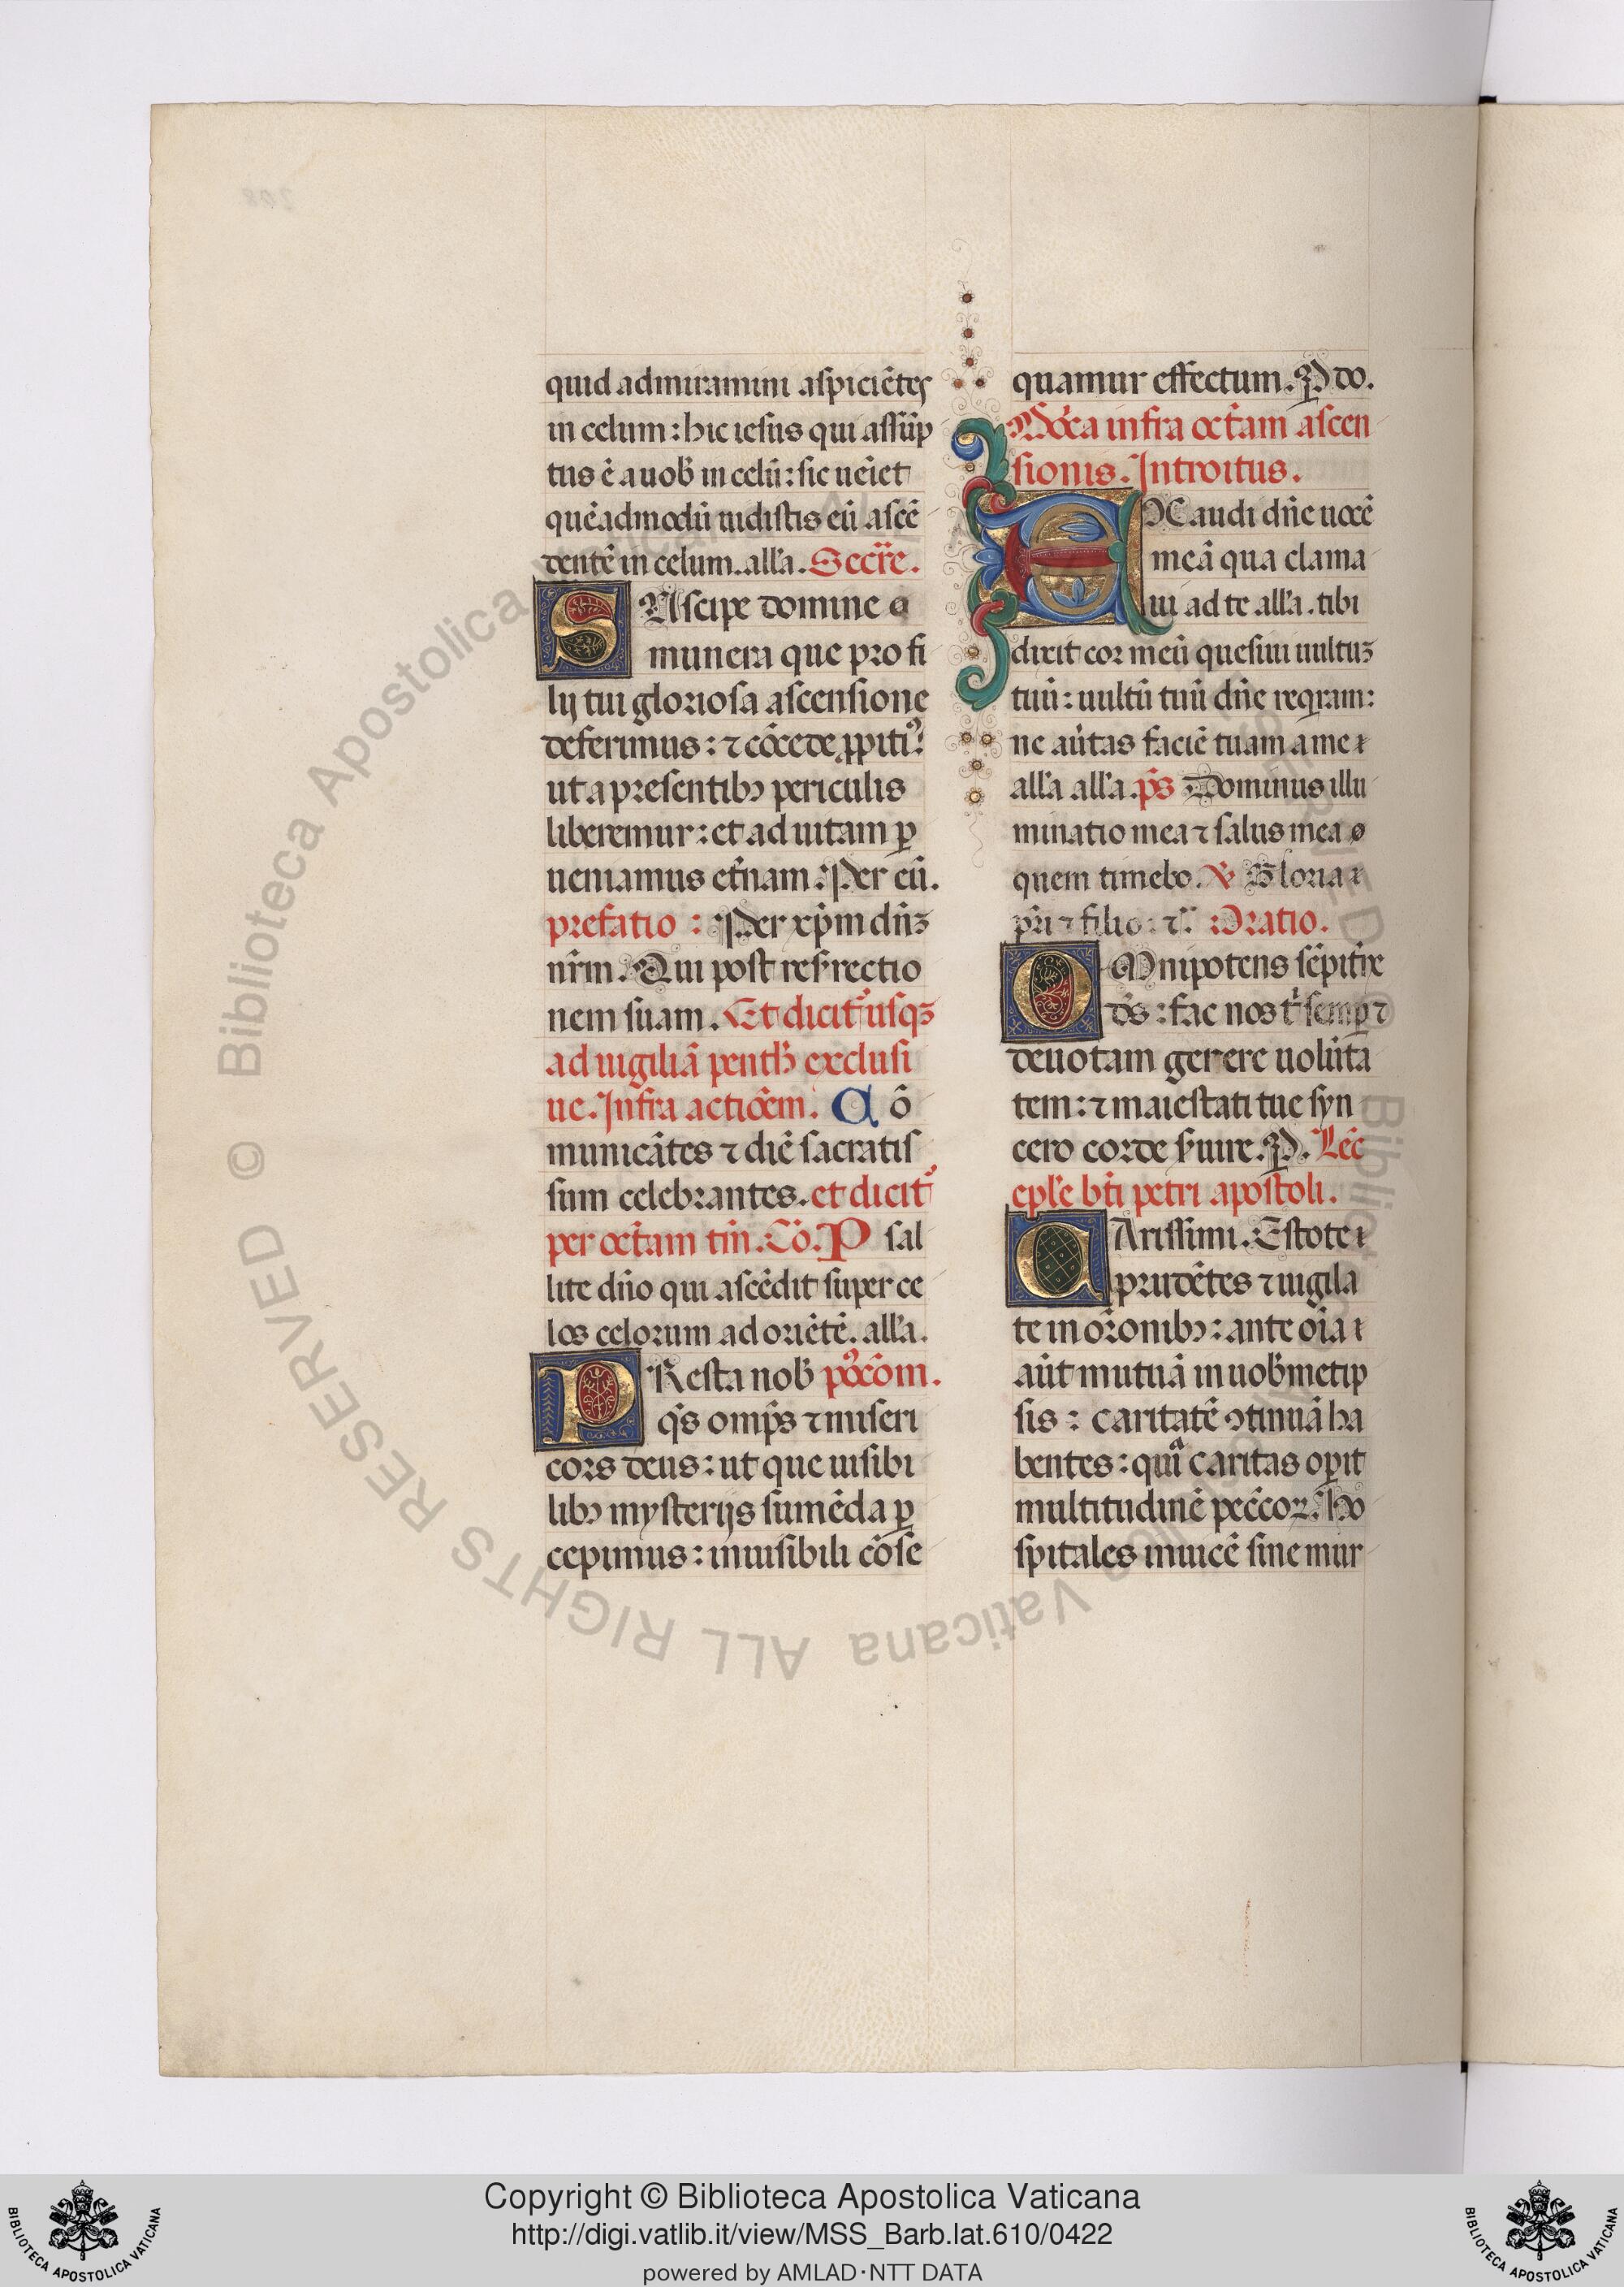 quid admiramini aspiciẽtes
in celum: hic iesus qui assũp
tus ẽ a uob̃ in celũ: sic ueĩet
quẽadmodũ uidistis eũ ascẽ
dentẽ in celum. all'a. Secr̃e.
SUscipe domine
munera que pro fi
lij tui gloriosa ascensione
deferimus: ⁊ cõcede ꝓpitiꝰ:
ut a presentibꝫ periculis
liberemur: et ad uitam ꝑ
ueniamus et̃nam. Per eũ.
prefatio: Per xp̃m dñꝫ
nr̃m. Qui post resr̃rectio
nem suam. Et dicit᷑ usqꝫ
ad uigiliã penth̃ exclusi
ue. Infra actiõem. Cõ
municãtes ⁊ diẽ sacratis
sim celebrantes. et dicit᷑
per oct̃am tm̃. Cõ. Psal
lite dño qui ascẽdit super ce
los celorum ad oriẽtẽ. all'a.
PResta nob̃ poꝰcõm.
q̃s omp̃s ⁊ miseri
cors deus: ut que uisibi
libꝫ mysterijs sumẽda ꝑ
cepimus: inuisibili cõse
quamur effectum. P̱ do.
Dõca infra oct̃am ascen
sionis. Introitus.
EXaudi dñe uocẽ
meã qua clama
ui ad te all'a. tibi
dixit cor meũ quesiui uultuꝫ
tuũ: uultũ tuũ dñe reqiram:
ne au̓tas faciẽ tuam a me
all'a all'a. p̃s Dominus illu
minatio mea ⁊ salus mea
quem timebo. ℣ Gloria
pr̃i ⁊ filio: ⁊c̃ Oratio.
OMnipotens sẽpit̃ne
ds̃: fac nos t' semꝑ ⁊
deuotam gerere uolũta
tem: ⁊ maiestati tue syn
cero corde s̓uire. P̱. Lec̃
epl'e bt̃i petri apostoli.
CArissimi. Estote
prudẽtes ⁊ uigila
te in or̃onibꝫ: ante oĩa
aũt mutuã in uob̃metip
sis: caritatẽ ꝯtinuã ha
bentes: quiᵃ caritas oꝑit
multitudinẽ pec̃coꝝ. Ho
spitales inuicẽ sine mur
© Biblioteca Apostolica Vaticana ALL RIGHTS RESERVED
Copyright © Biblioteca Apostolica Vaticana
http://digi.vatlib.it/view/MSS_Barb.lat.610/0422
powered by AMLAD·NTT DATA
BIBLIOTECA APOSTOLICA VATICANA
BIBLIOTECA APOSTOLICA VATICANA